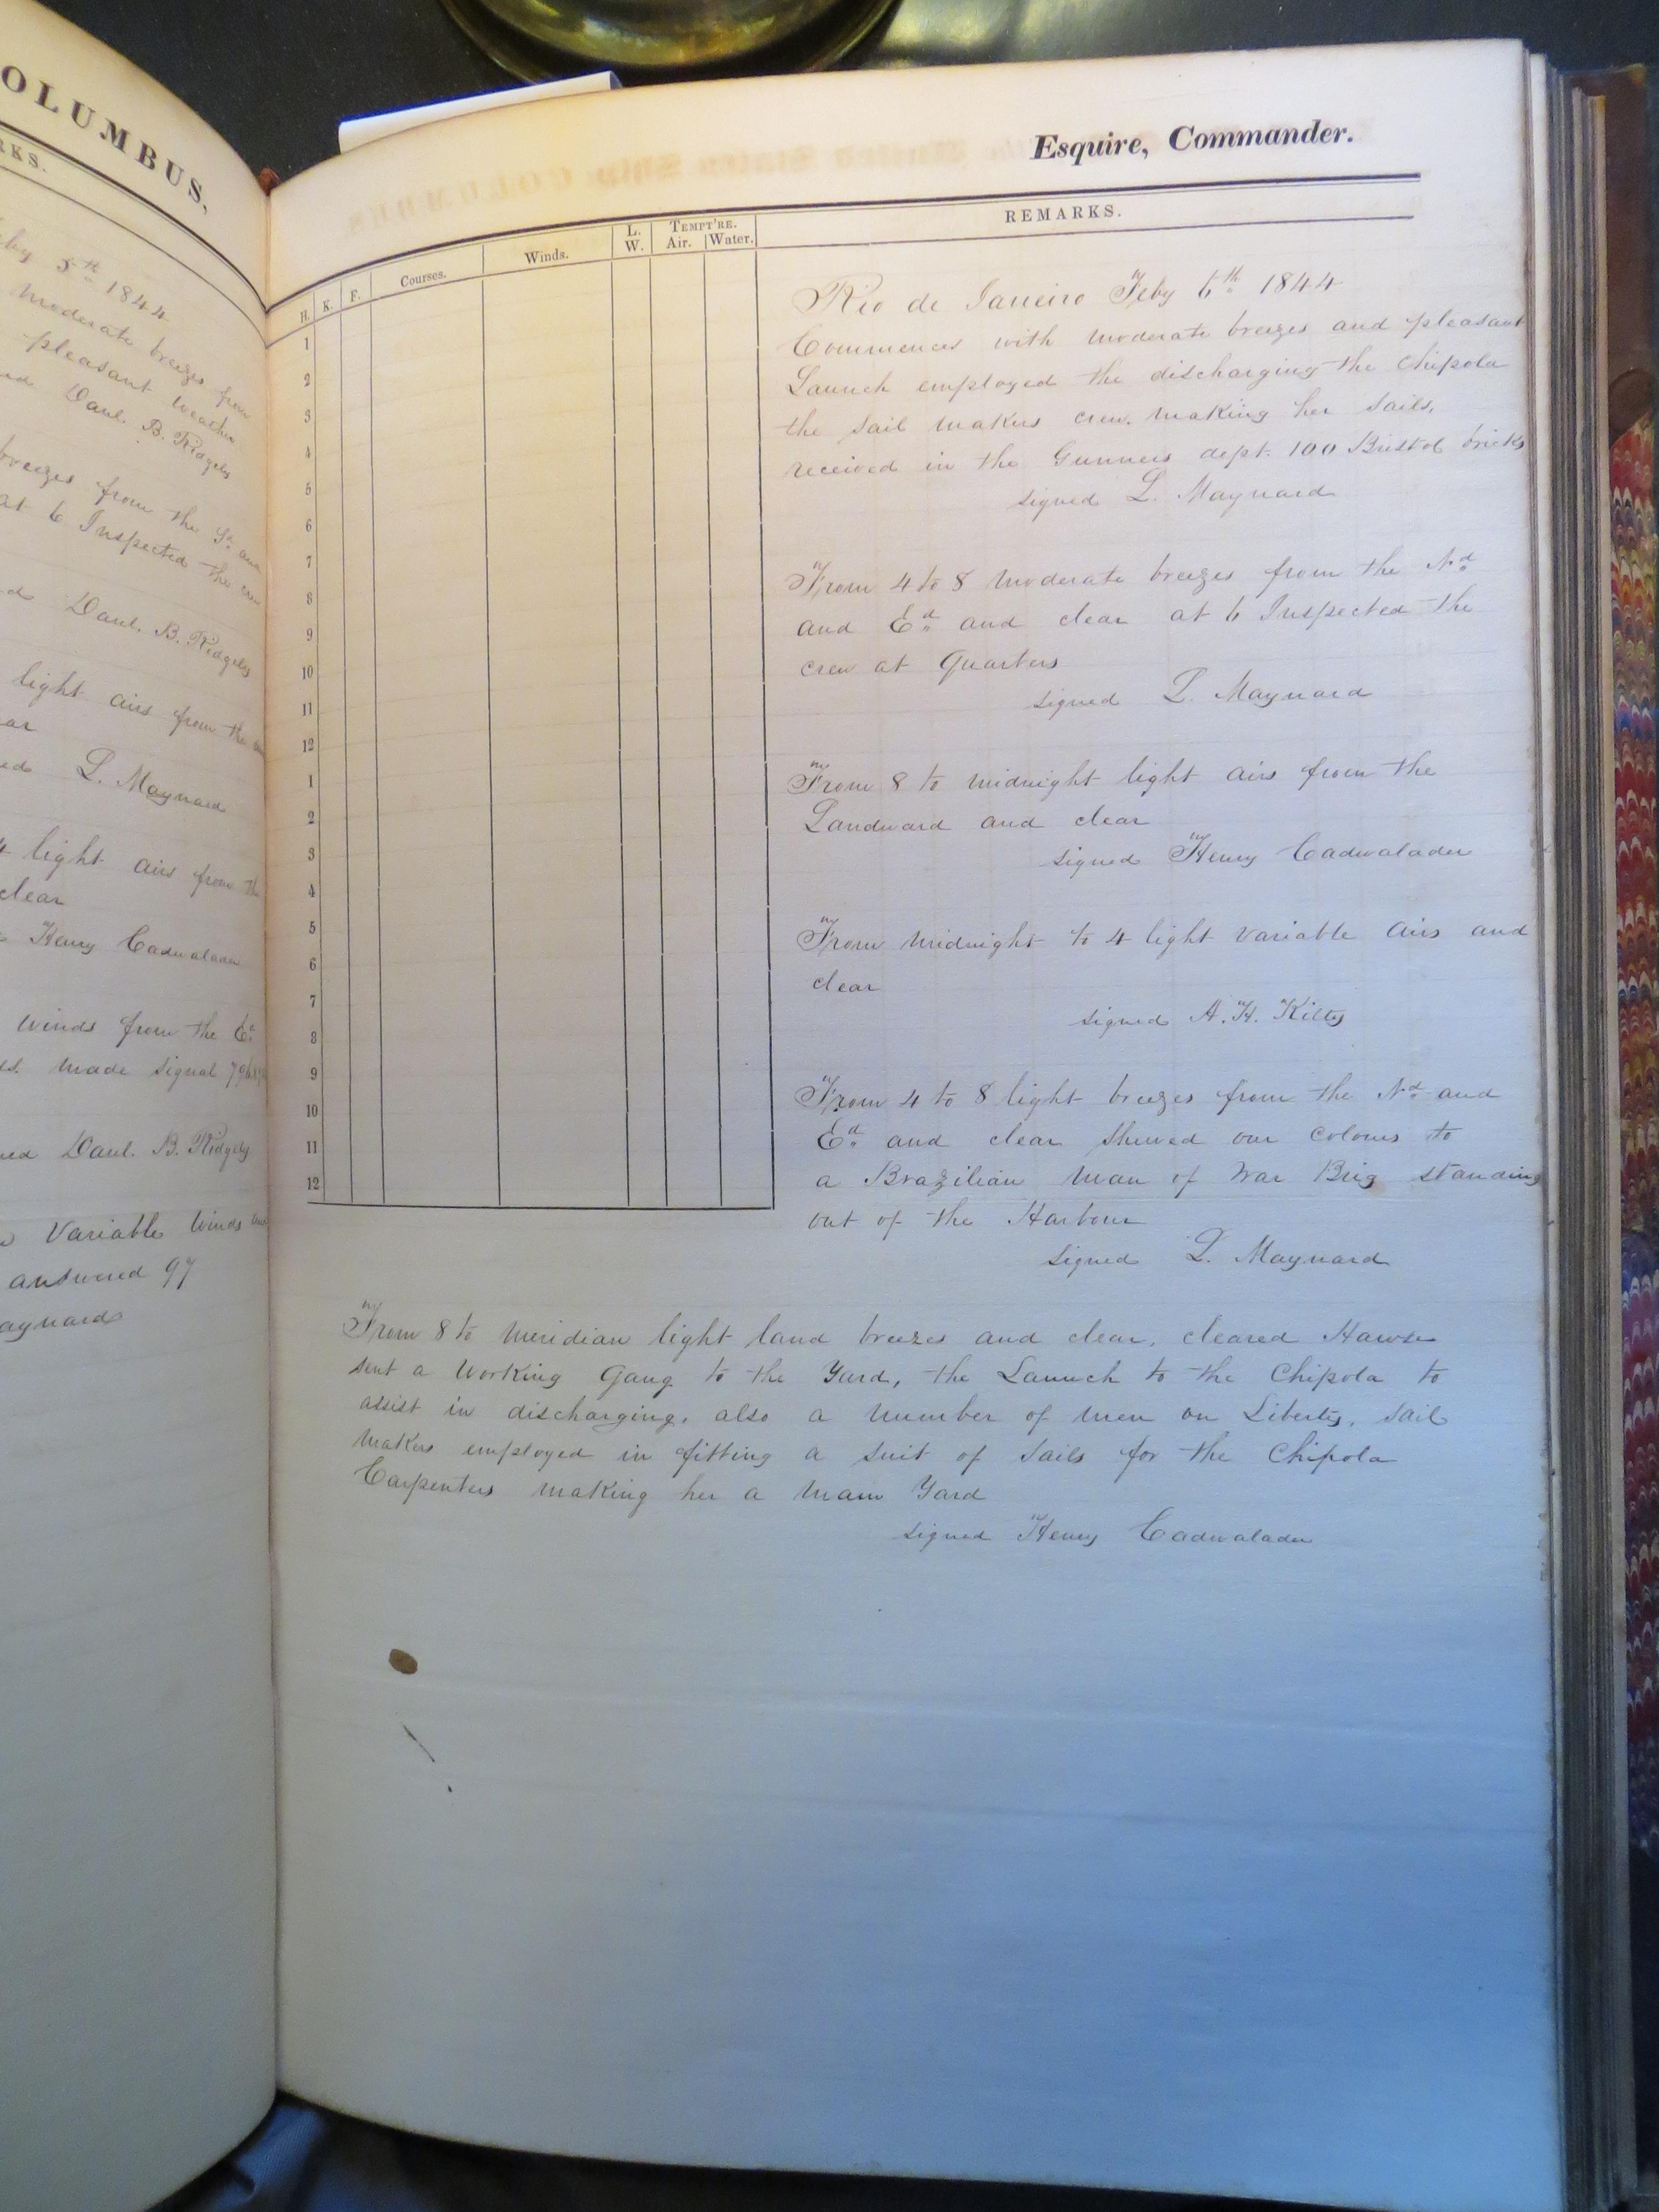 OLUMBUS.
RKS.
eby 5th 1844
moderate breezes from
pleasant weather
ed Danl. B. Ridgely
breezes from the Sd. and
at 6 Inspected the crew
d Danl. B. Ridgely
light airs from the
ar
ed L. Maynard
4 light airs from the
clear
Henry Cadwalader
winds from the Ed.
ds. made signal
ned Danl. B. Ridgely
Variable winds and
answered 97
aynard
Esquire, Commander.
H. K. F. Courses. Winds. L. W. TEMPT'RE. Air. Water. REMARKS.
1
2
3
4
5
6
7
8
9
10
11
12
1
2
3
4
5
6
7
8
9
10
11
12
Rio de Janeiro Feby 6th. 1844
Commences with moderate breezes and pleasant
Launch employed the discharging the Chipola
the sail makers crew. making her sails,
received in the Gunners dept. 100 Bristol bricks
signed L. Maynard
From 4 to 8 moderate breezes from the Nd.
and Ed. and clear at 6 Inspected the
crew at Quarters
signed L. Maynard
From 8 to midnight light airs from the
Landward and clear
signed Henry Cadwalader
From midnight to 4 light variable airs and
clear
signed A. H. Kilty
From 4 to 8 light breezes from the Nd. and
Ed. and clear shewed our colours to
a Brazilian man of War Brig standing
out of the Harbour
signed L. Maynard
From 8 to meridian light land breezes and clear, cleared Hawse
sent a Working Gang to the Yard, the Launch to the Chipola to
assist in discharging, also a number of men on Liberty, sail
makers employed in fitting a suit of sails for the Chipola
Carpenters making her a main Yard
signed Henry Cadwalader